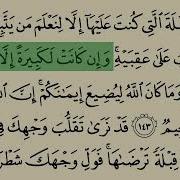 لَةَ ٱلَّتِى كُنتَ عَلَيْهَآ إِلَّا لِنَعْلَمَ مَن يَتَّبِ
تَ عَلَىٰ عَقِبَيْهِ ۚ وَإِن كَانَتْ لَكَبِيرَةً إِلَّ
وَمَا كَانَ ٱللَّهُ لِيُضِيعَ إِيمَـٰنَكُمْ ۚ إِنَّ ٱللَّ
يمٌ ١٤٣ قَدْ نَرَىٰ تَقَلُّبَ وَجْهِكَ فِى
قِبْلَةً تَرْضَىٰهَا ۚ فَوَلِّ وَجْهَكَ شَطْرَ